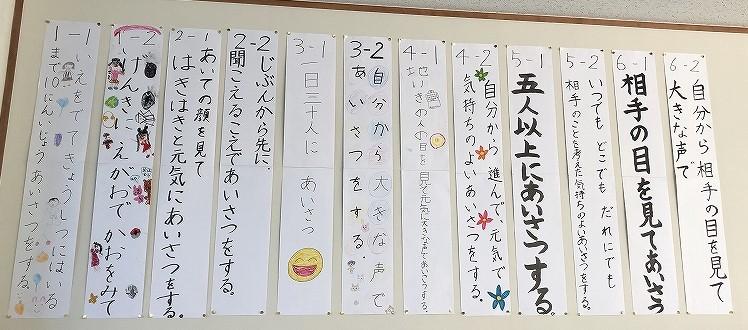 1-1
いえをでてきょうしつにはいる
まで10にんいじょうあいさつをする。
1-2
げんきに えがおで かおをみて
2-1
あいての顔を見て
はきはきと元気にあいさつをする。
2-2
じぶんから先に、
聞こえるこえであいさつをする。
3-1
一日三十人に あいさつ
3-2
自分から大きな声で
あいさつをする。
4-1
地いきの人の目を
元気に大きな声であいさつする。
4-2
自分から進んで、元気で
気持ちのよいあいさつをする。
5-1
五人以上にあいさつする。
5-2
いつでも どこでも だれにでも
相手のことを考えた気持ちのよいあいさつをする。
6-1
相手の目を見てあいさつ
6-2
自分から相手の目を見て
大きな声で